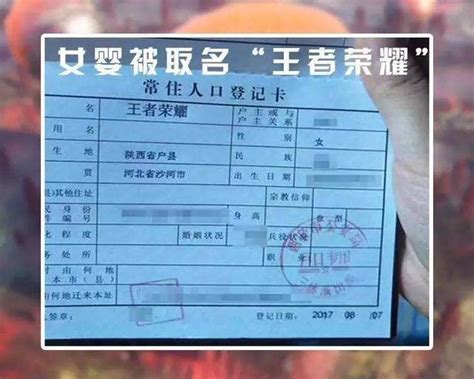 女婴被取名“王者荣耀”
常住人口登记卡
名 王者荣耀 户主或与户主关系
用名 性别 女
生地 陕西省户县 民族
贯 河北省沙河市 出生日期
县)其他住址 宗教信仰
民身份件编号 身高 血型
化程度 婚姻状况 兵役状况
务处所 职业
时由何地本市(县)
由何地迁来本址
人签章： 登记日期： 2017 08 07